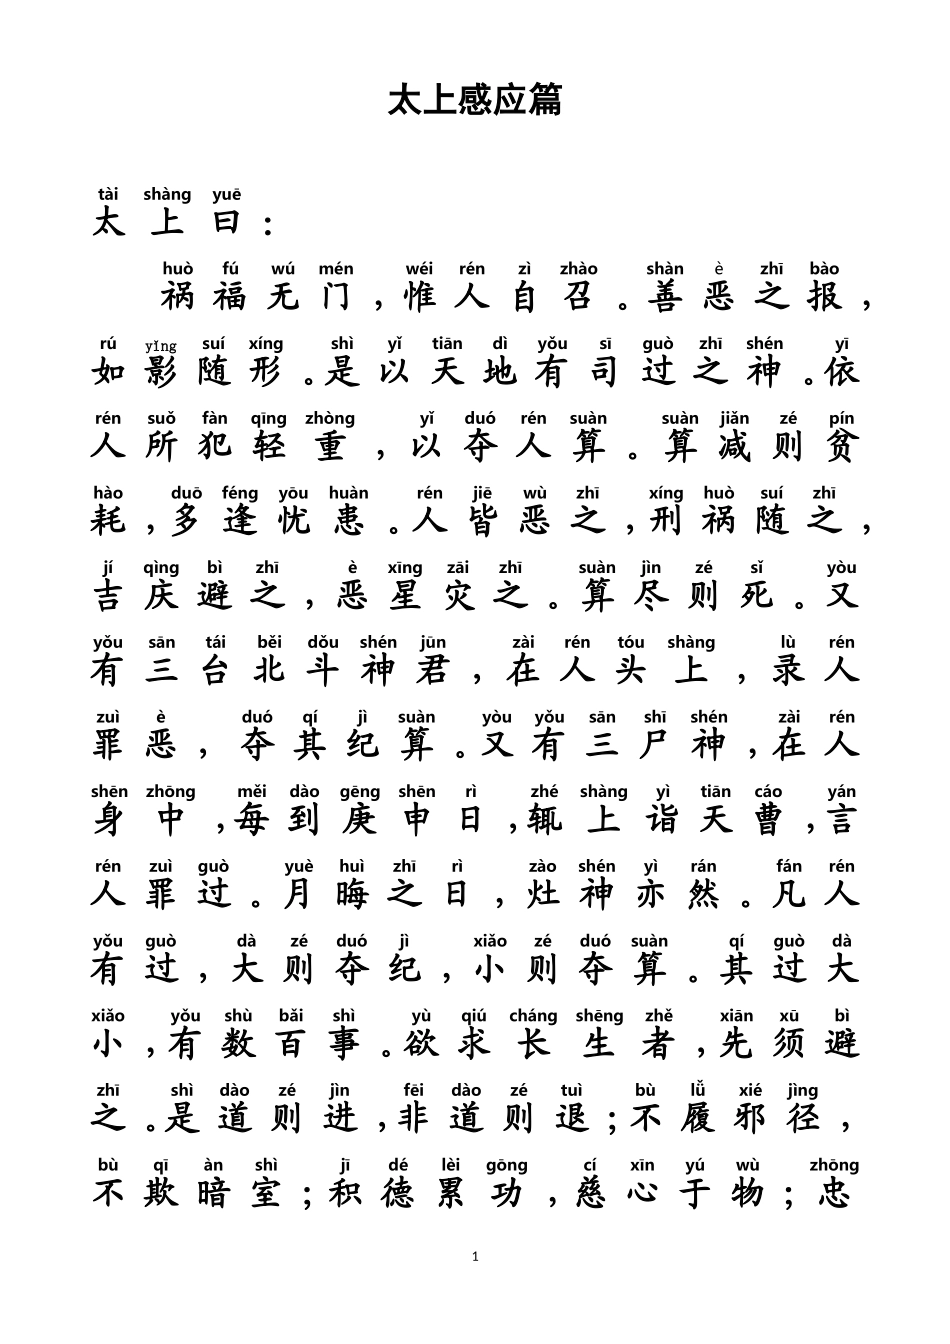 太上感应篇
tài shàng yuē
太上曰：
huò fú wú mén wéi rén zì zhào shàn è zhī bào
祸福无门，惟人自召。善恶之报，
rú yǐng suí xíng shì yǐ tiān dì yǒu sī guò zhī shén yī
如影随形。是以天地有司过之神。依
rén suǒ fàn qīng zhòng yǐ duó rén suàn suàn jiǎn zé pín
人所犯轻重，以夺人算。算减则贫
hào duō féng yōu huàn rén jiē wù zhī xíng huò suí zhī
耗，多逢忧患。人皆恶之，刑祸随之，
jí qìng bì zhī è xīng zāi zhī suàn jìn zé sǐ yòu
吉庆避之，恶星灾之。算尽则死。又
yǒu sān tái běi dǒu shén jūn zài rén tóu shàng lù rén
有三台北斗神君，在人头上，录人
zuì è duó qí jì suàn yòu yǒu sān shī shén zài rén
罪恶，夺其纪算。又有三尸神，在人
shēn zhōng měi dào gēng shēn rì zhé shàng yì tiān cáo yán
身中，每到庚申日，辄上诣天曹，言
rén zuì guò yuè huì zhī rì zào shén yì rán fán rén
人罪过。月晦之日，灶神亦然。凡人
yǒu guò dà zé duó jì xiǎo zé duó suàn qí guò dà
有过，大则夺纪，小则夺算。其过大
xiǎo yǒu shù bǎi shì yù qiú cháng shēng zhě xiān xū bì
小，有数百事。欲求长生者，先须避
zhī shì dào zé jìn fēi dào zé tuì bù lǚ xié jìng
之。是道则进，非道则退；不履邪径，
bù qī àn shì jī dé lèi gōng cí xīn yú wù zhōng
不欺暗室；积德累功，慈心于物；忠
1